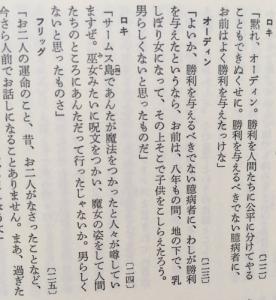 ロキ
「黙れ、オーディン。勝利を人間たちに公平に分けてやる
こともできぬくせに。勝利を与えるべきでない臆病者に、
お前はよく勝利を与えたっけな」
〔二二〕
オーディン
「よいか、勝利を与えるべきでない臆病者に、わしが勝利
を与えたというなら、お前は、八年もの間、地の下で、乳
しぼり女になって、その上そこで子供をこしらえたろう。
男らしくないと思ったものだ」
〔二三〕
ロキ
「サームス島であんたが魔法をつかったと人々が噂してい
ますぜ。巫女みたいに呪文をつかい、魔女の姿をして人間
たちのところにあんただって行ったじゃないか。男らしく
ないと思ったものさ」
〔二四〕
フリッグ
「お二人の運命のこと、昔、お二人がなさったことなど、
今さら人前でお話しになることありません。まあ、過ぎた
〔二五〕